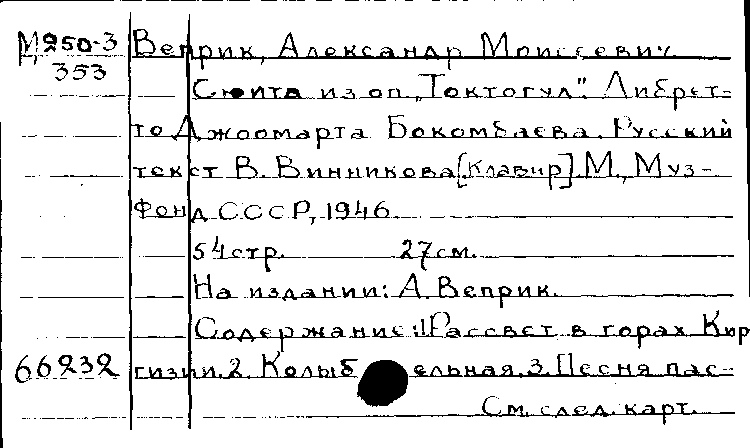 Ц250-3 Веприк, Александр Моисеевич.
353
Сюита из оп. „Токтогул". Либрет-
то Джоомарта Бокомбаева. Русский
текст В. Винникова [Клавир]. М., Муз-
фонд СССР, 1946.
54 стр. 27 см.
На издании: А. Веприк.
Содержание: 1. Рассвет в горах Кир
66232 гизии. 2. Колыбельная. 3. Песня пас-
См. след. карт.